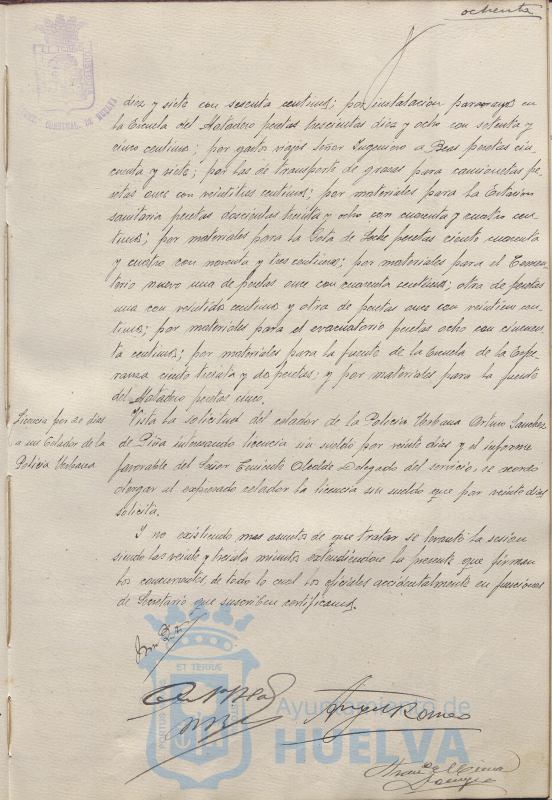 ochenta
diez y siete con sesenta centimos; por instalación pararrayos en
la Escuela del Matadero pesetas trescientas diez y ocho con setenta y
cinco centimos; por gastos viajes Señor Ingeniero a Beas pesetas cin
cuenta y siete; por las de transporte de grasas para camionetas pe
setas once con veintitres centimos; por materiales para la Estacion
sanitaria pesetas doscientas treinta y ocho con cuarenta y cuatro cen
timos; por materiales para la Gota de Leche pesetas ciento cuarenta
y cuatro con noventa y tres centimos; por materiales para el Cemen
terio nuevo una de pesetas once con cuarenta centimos; otra de pesetas
una con veintidos centimos y otra de pesetas once con veintiun cen
timos; por materiales para el evacuatorio pesetas ocho con cincuen
ta centimos; por materiales para la fuente de la Escuela de la Espe
ranza ciento treinta y dos pesetas; y por materiales para la fuente
del Matadero pesetas cinco.
Licencia por 20 dias
a un Celador de la
Policia Urbana
Vista la solicitud del celador de la Policia Urbana Arturo Sanchez
de Piña interesando licencia sin sueldo por veinte dias y el informe
favorable del Señor Teniente Alcalde Delegado del servicio, se acordo
otorgar al expresado celador la licencia sin sueldo que por veinte dias
solicita.
Y no existiendo mas asuntos de que tratar se levantó la sesion
siendo las veinte y treinta minutos extendiendose la presente que firman
los concurrentes de todo lo cual los oficiales accidentalmente en funciones
de Secretario que suscriben certificamos.
ET TERRÆ
Angel Romeo
Ayuntamiento de
HUELVA